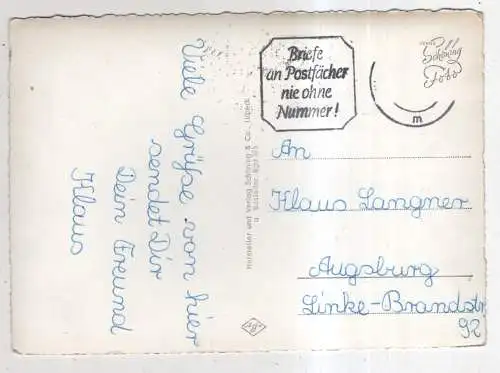 Viele Grüße von hier
sendet Dir
Dein Freund
Klaus
Hersteller und Verlag Schöning & Co., Lübeck
Briefe
an Postfächer
nie ohne
Nummer!
m
Schöning
Foto
An
Klaus Langner
Augsburg
Linke-Brandstr
92